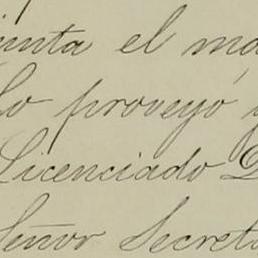 el
Lo proveyó
Licenciado D
Señor Secreta